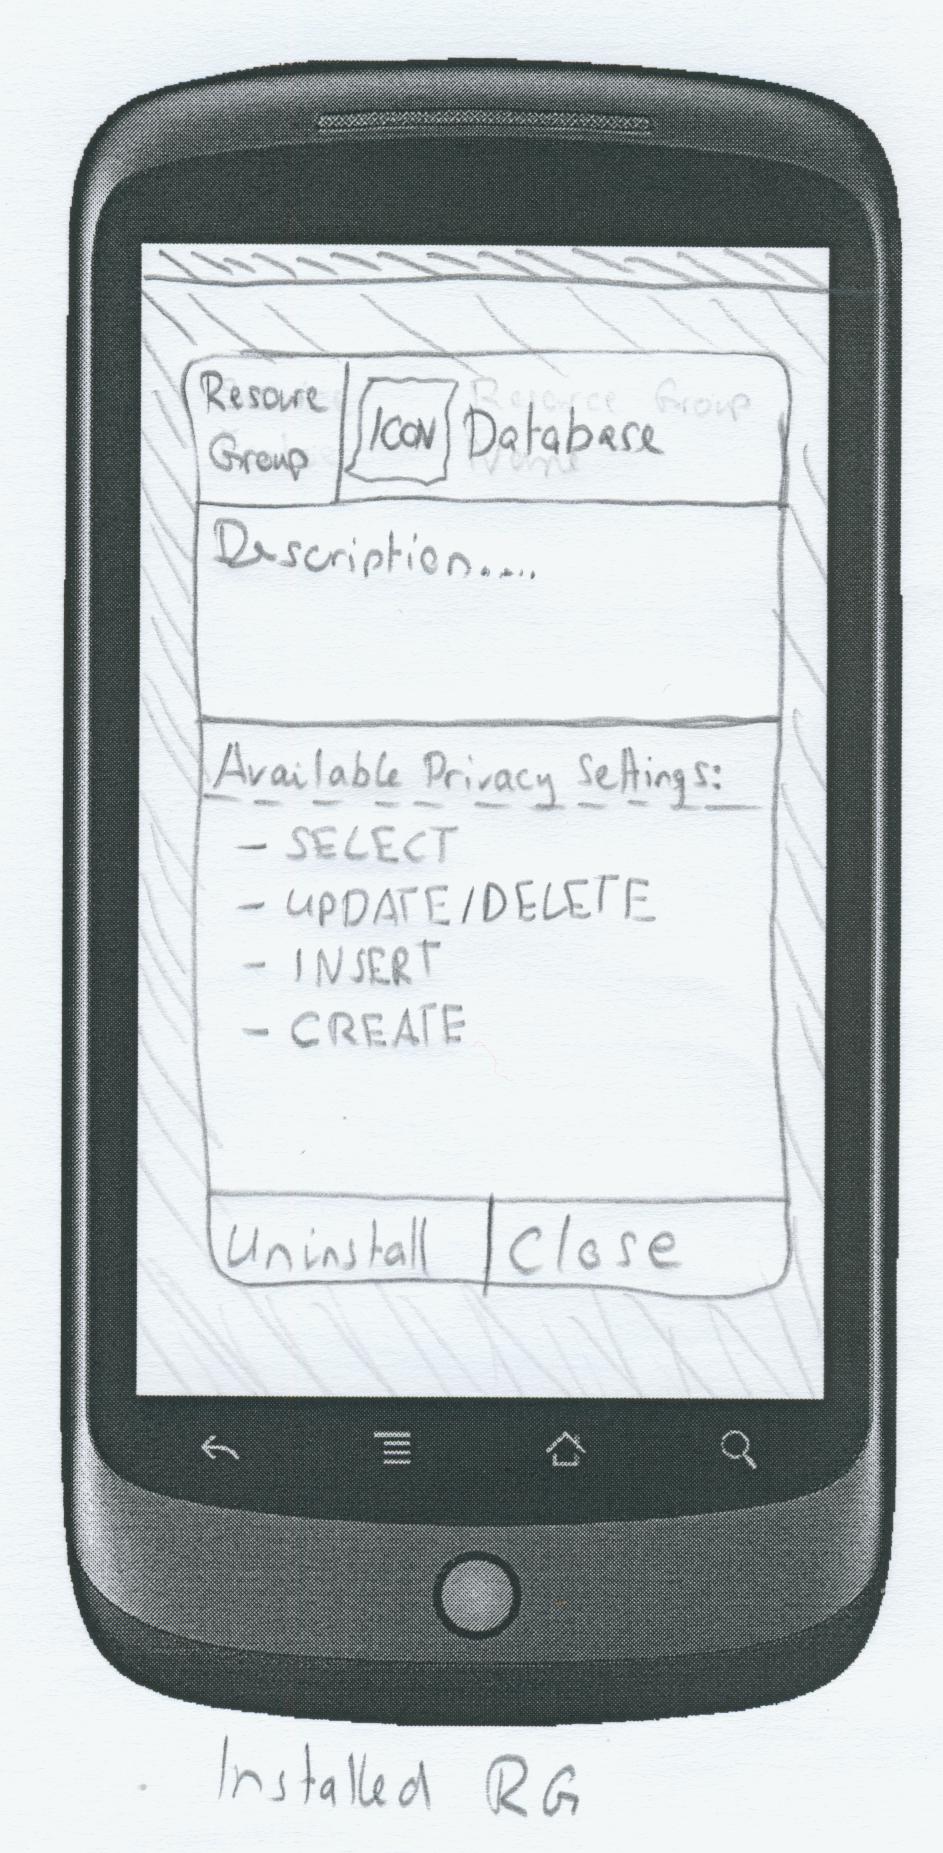 Resource Group
Resoure
Group
ICON
Database
Name
Description.....
Available Privacy Settings:
- SELECT
- UPDATE/DELETE
- INSERT
- CREATE
Uninstall
Close
Installed RG